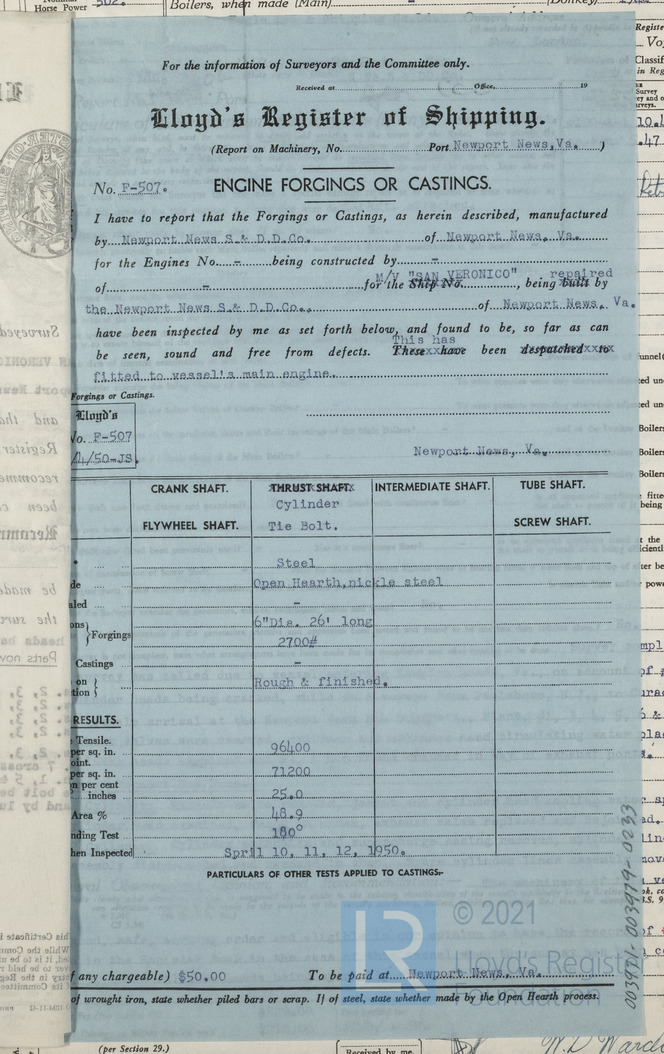 Horse Power 502.
Boilers, when made (Main)
For the information of Surveyors and the Committee only.
Received at Office, 19
Lloyd's Register of Shipping.
(Report on Machinery, No. Port Newport News, Va. )
No. F-507. ENGINE FORGINGS OR CASTINGS.
I have to report that the Forgings or Castings, as herein described, manufactured
by Newport News S.& D.D.Co. of Newport News, Va.
for the Engines No. - being constructed by -
M/V "SAN VERONICO" repaired
of - for the Ship No. , being built by
the Newport News S.& D.D.Co., of Newport News, Va.
have been inspected by me as set forth below, and found to be, so far as can
This has
be seen, sound and free from defects. These have been despatched to
fitted to vessel's main engine.
Forgings or Castings.
Lloyd's
No. F-507
/4/50-JS.
Newport News, Va.
CRANK SHAFT. THRUST SHAFT. INTERMEDIATE SHAFT. TUBE SHAFT.
Cylinder
FLYWHEEL SHAFT. Tie Bolt. SCREW SHAFT.
Steel
de Open Hearth,nickle steel
aled -
ons) 6"Dia. 26' long
Forgings 2700#
Castings -
on
tion Rough & finished.
RESULTS.
Tensile.
per sq. in. 96400
oint.
per sq. in. 71200
n per cent
inches 25.0
Area % 48.9
nding Test 180°
hen Inspected April 10, 11, 12, 1950.
PARTICULARS OF OTHER TESTS APPLIED TO CASTINGS:-
LR © 2021
Lloyd's Register
Foundation
f any chargeable) $50.00 To be paid at Newport News, Va.
of wrought iron, state whether piled bars or scrap. If of steel, state whether made by the Open Hearth process.
003971-003979-0233
(per Section 29.)
Received by me,